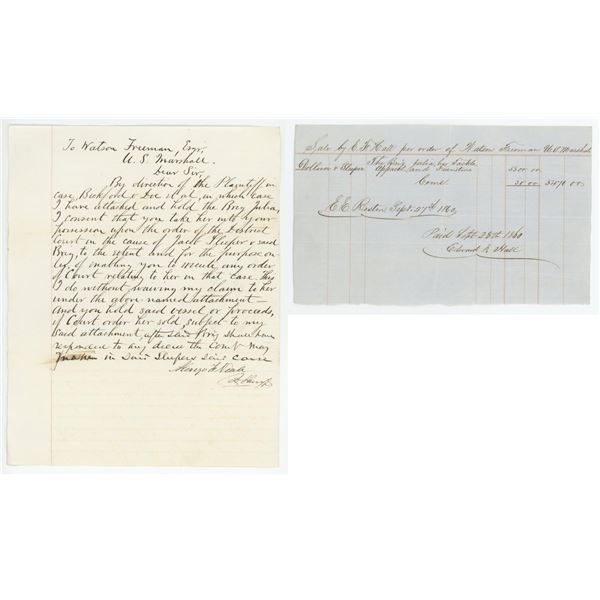 To Watson Freeman, Esqr.
U. S. Marshall.
Dear Sir,
By direction of the Plaintiff in
case, Bickford & Doe et al, in which case
I have attached and hold the Brig Julia,
I consent that you take her into your
possession upon the order of the District
Court in the cause of Jacob Sleeper v. said
Brig, to the extent and for the purpose on-
ly, of enabling you to execute any order
of Court relating to her in that case. This
I do without waiving my claim to her
under the above named attachment —
And you hold said vessel or proceeds,
if Court order her sold, subject to my
said attachment, after said Brig shall have
responded to any decree the Court may
in said Sleepers said case
Sale by E. F. Hall per order of Watson Freeman U. S. Marshal
The Brig Julia her tackle
Apparel and Furniture 5300 00
25 00
Boston Sept. 27th 1860
Paid Sept. 28th 1860
Edward F. Hall